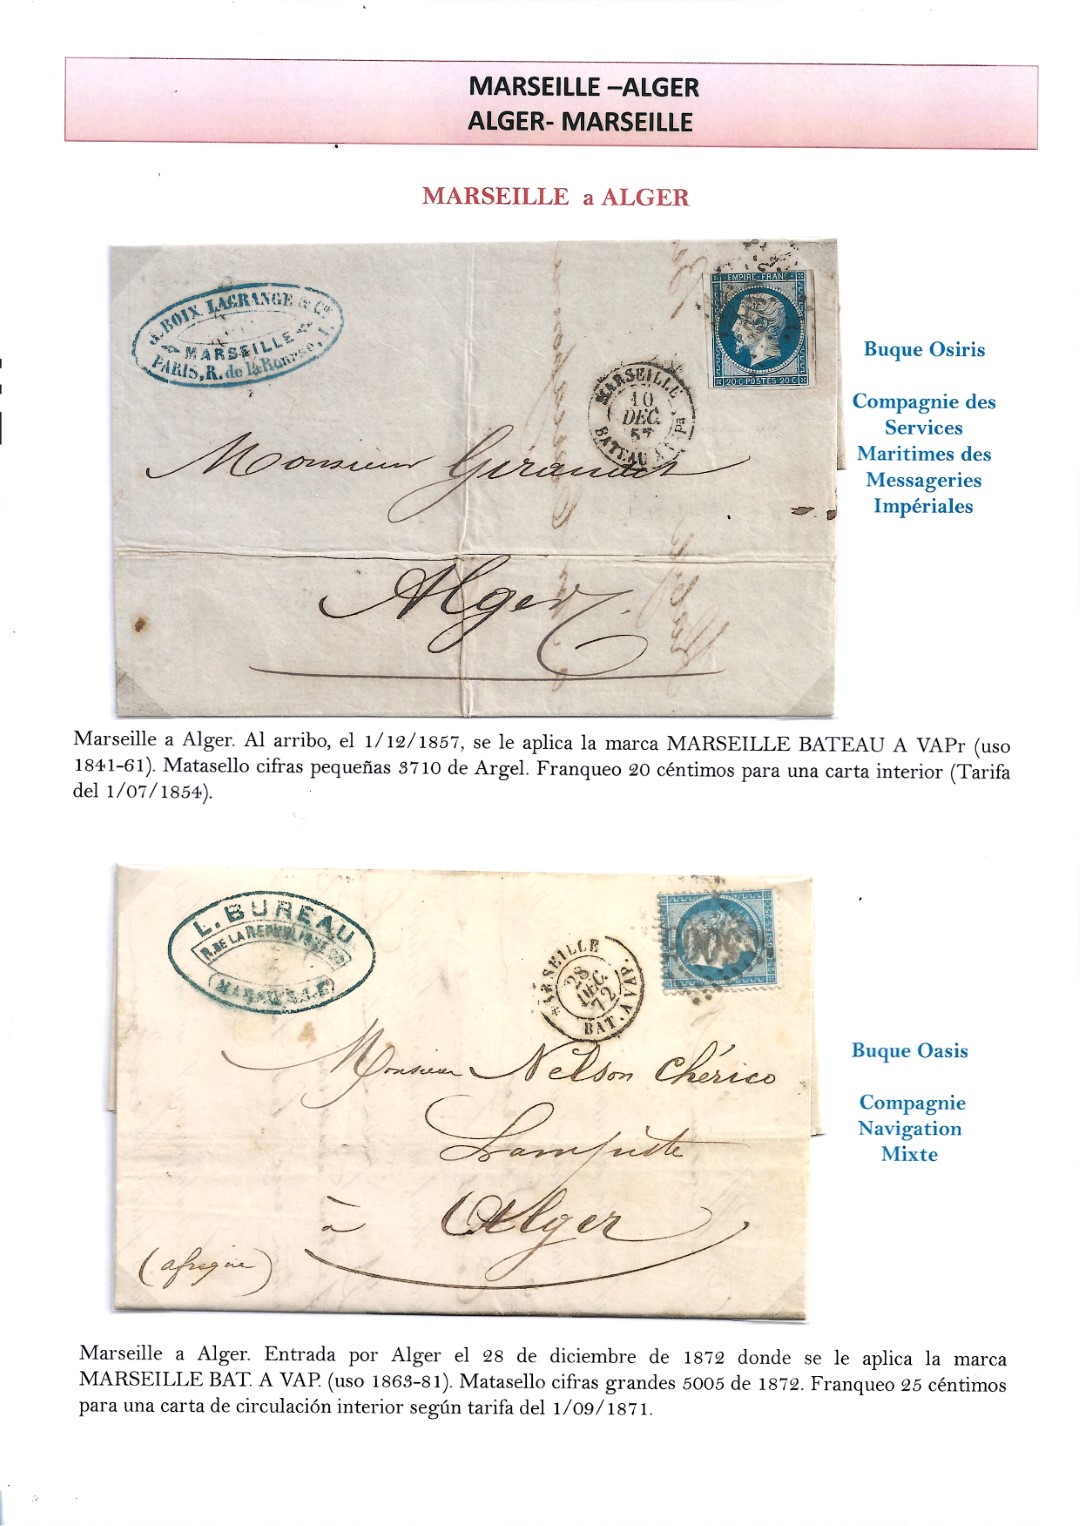 MARSEILLE –ALGER
ALGER- MARSEILLE
MARSEILLE a ALGER
G. BOIX, LAGRANGE & Cie
MARSEILLE
PARIS, R. de la Bourse, 1.
EMPIRE FRANC
20 C POSTES 20 C
MARSEILLE
10
DEC.
57
BATEAU A VAPR
Monsieur
Alger
Buque Osiris
Compagnie des
Services
Maritimes des
Messageries
Impériales
Marseille a Alger. Al arribo, el 1/12/1857, se le aplica la marca MARSEILLE BATEAU A VAPr (uso
1841-61). Matasello cifras pequeñas 3710 de Argel. Franqueo 20 céntimos para una carta interior (Tarifa
del 1/07/1854).
L. BUREAU
R. DE LA REPUBLIQUE
MARSEILLE
MARSEILLE
28
DEC.
72
BAT. A VAP.
5005
Monsieur Nelson Chérico
à Alger
(afrique)
Buque Oasis
Compagnie
Navigation
Mixte
Marseille a Alger. Entrada por Alger el 28 de diciembre de 1872 donde se le aplica la marca
MARSEILLE BAT. A VAP. (uso 1863-81). Matasello cifras grandes 5005 de 1872. Franqueo 25 céntimos
para una carta de circulación interior según tarifa del 1/09/1871.